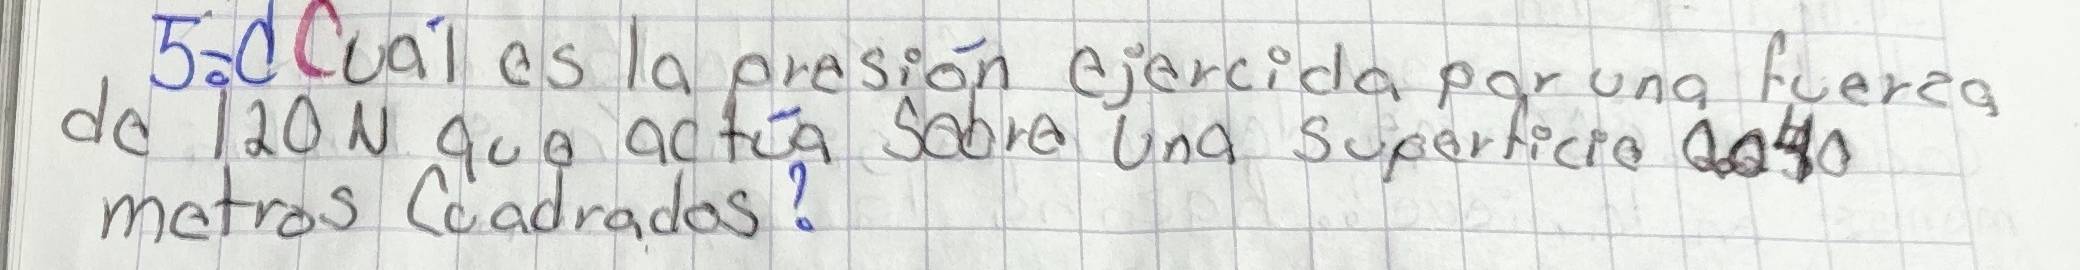 5.- ¿Cuál es la presión ejercida por una fuerza
de 120 N que actúa sobre una superficie 0.040
metros Cuadrados?